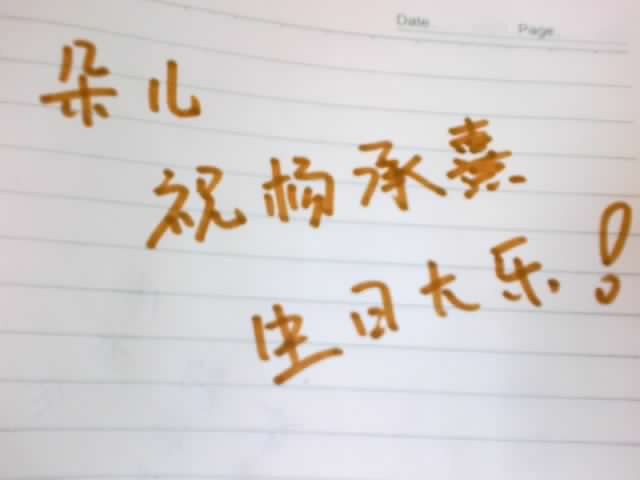 Date Page
朵儿
祝杨承熹
生日大乐!